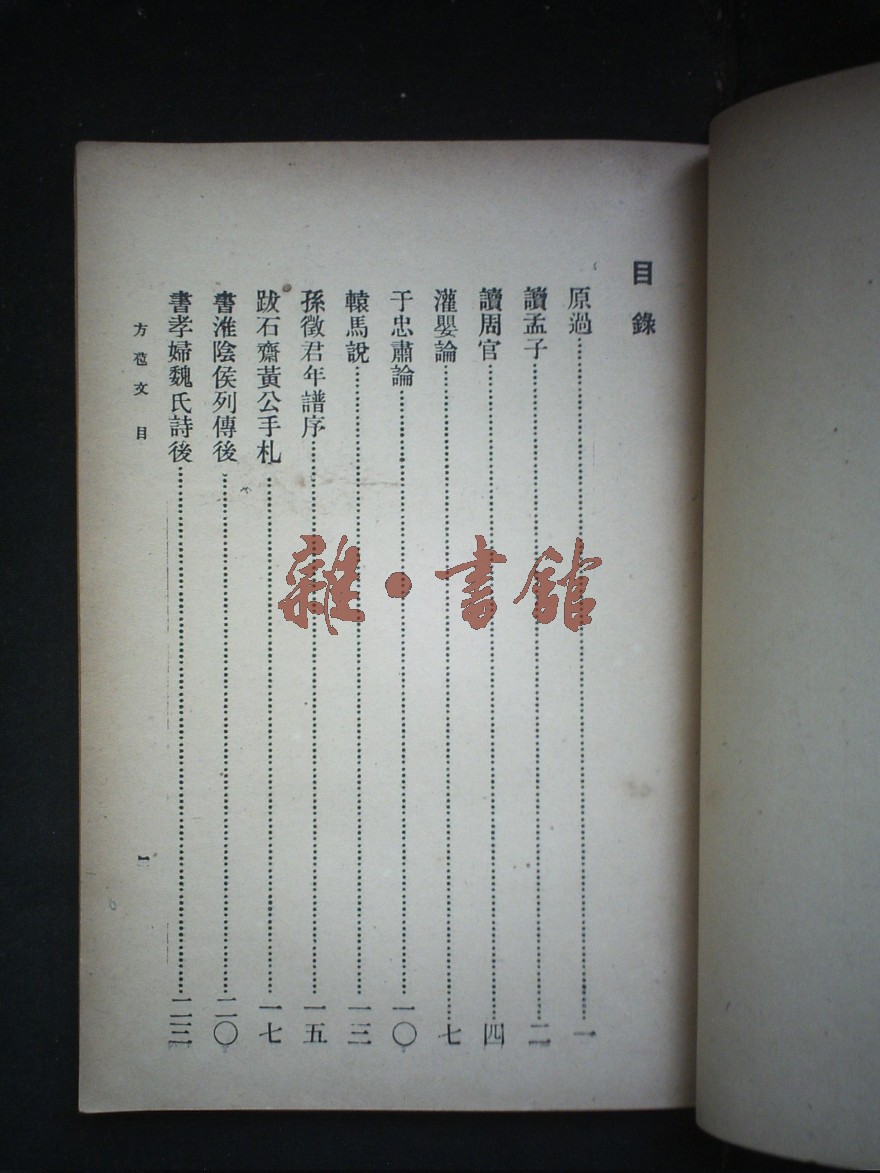 目錄
原過……一
讀孟子……二
讀周官……四
灌嬰論……七
于忠肅論……一〇
轅馬說……一三
孫徵君年譜序……一五
跋石齋黃公手札……一七
書淮陰侯列傳後……二〇
書孝婦魏氏詩後……二三
方苞文 目
一
雜·書館